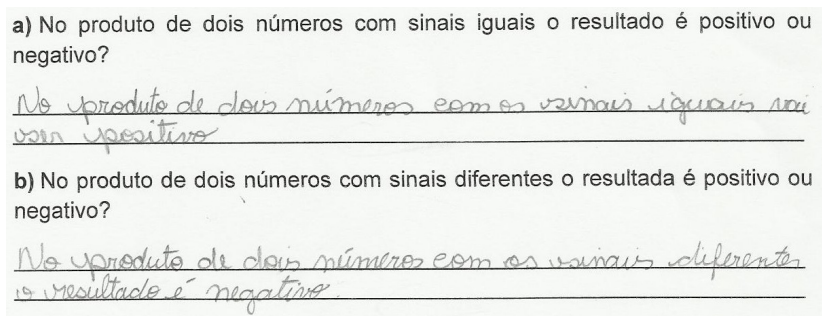 a) No produto de dois números com sinais iguais o resultado é positivo ou
negativo?
No produto de dois números com os sinais iguais vai
ser positivo
b) No produto de dois números com sinais diferentes o resultada é positivo ou
negativo?
No produto de dois números com os sinais diferentes
o resultado é negativo.